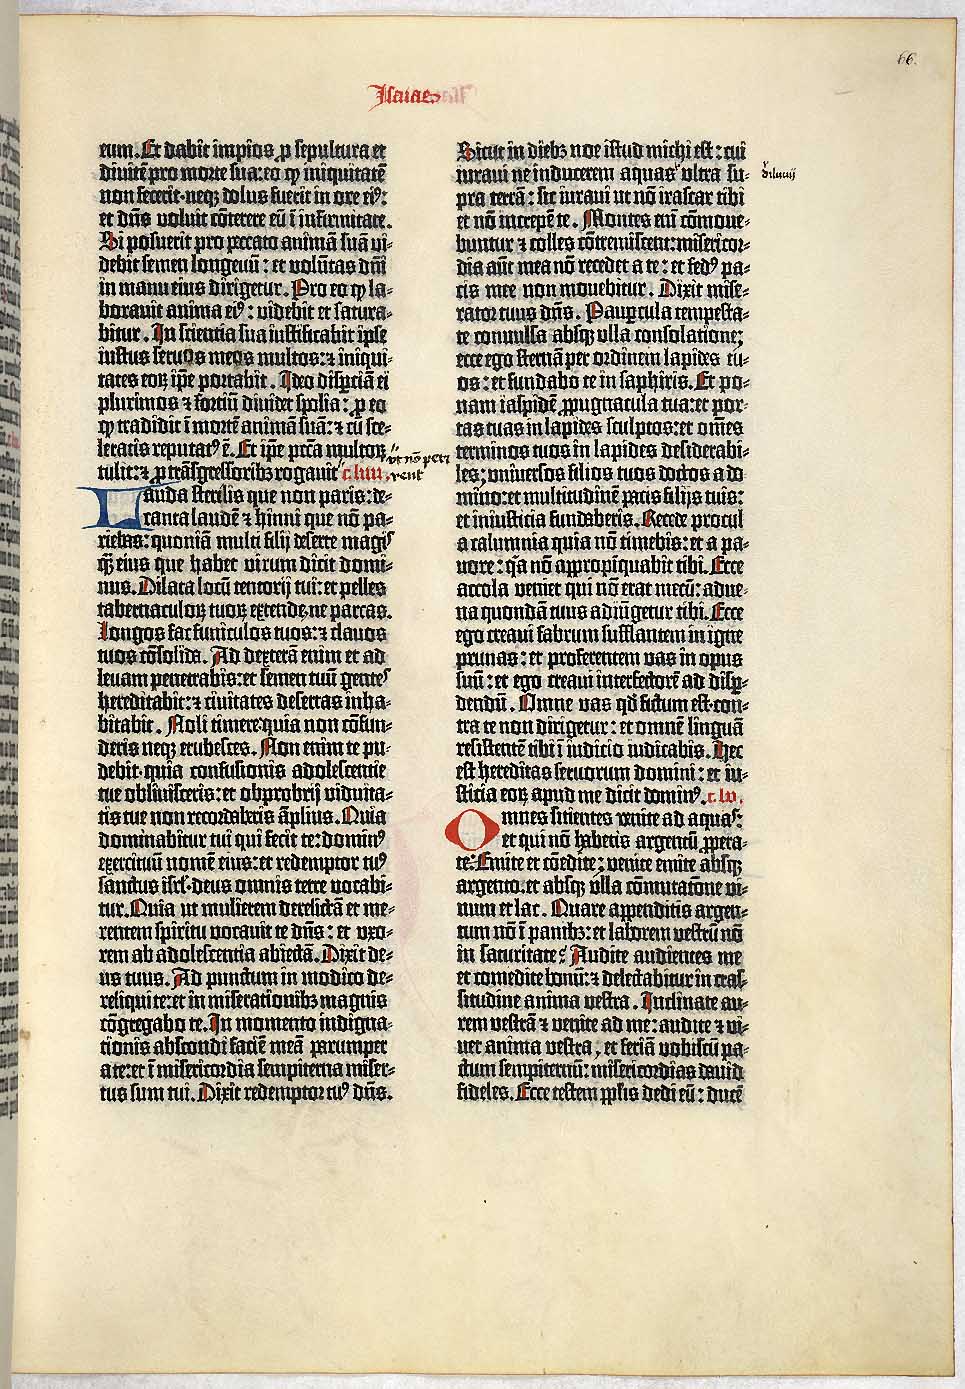 66.
Isaias
eum. Et dabit impios ꝓ sepultura et
divitẽ pro morte sua: eo ꝙ iniquitatẽ
non fecerit · neqꝫ dolus fuerit in ore eiꝰ:
et dñs voluit cõterere eũ ĩ infirmitate.
Si posuerit pro peccato animã suã vi⸗
debit semen longeuũ: et volũtas dñi
in manu eius dirigetur. Pro eo ꝙ la⸗
boravit anima eiꝰ: videbit et satura⸗
bitur. In scientia sua iustificabit ipse
iustus servos meos multos: ⁊ iniqui⸗
tates eoꝝ ip̃e portabit. Ideo disꝑtiã ei
plurimos ⁊ fortiũ dividet spolia: ꝓ eo
ꝙ tradidit ĩ mortẽ animã suã: ⁊ cũ sce⸗
leratis reputatꝰ ẽ. Et ip̃e pc̃ca multoꝝ
tulit: ⁊ ꝓ trãsgressoribꝫ rogavit
ut nõ peri
rent
c. liiii.
Lauda sterilis que non paris: de⸗
canta laudẽ ⁊ hinni que nõ pa⸗
riebas: quoniã multi filij deserte magis
q̃ȝ eius que habet virum dicit domi⸗
nus. Dilata locũ tentorij tui: et pelles
tabernaculoꝝ tuoꝝ extende, ne parcas.
Longos fac funiculos tuos: ⁊ clavos
tuos cõsolida. Ad dexterã enim et ad
levam penetrabis: et semen tuũ gentes
hereditabit: ⁊ civitates desertas inha⸗
bitabit. Noli timere: quia non cõfun⸗
deris neqꝫ erubesces. Non enim te pu⸗
debit · quia confusionis adolescentie
tue oblivisceris: et obprobrij viduita⸗
tis tue non recordaberis ãplius. Quia
dominabitur tui qui fecit te: dominꝰ
exercituũ nomẽ eius: et redemptor tuꝰ
sanctus isrl̃ · deus omnis terre vocabi⸗
tur. Quia ut mulierem derelictã et me⸗
rentem spiritu vocavit te dñs: et uxo⸗
rem ab adolescentia abiectã. Dixit de⸗
us tuus. Ad punctum in modico de⸗
reliqui te: et in miserationibꝫ magnis
cõgregabo te. In momento indigna⸗
tionis abscondi faciẽ meã parumper
a te: et ĩ misericordia sempiterna miser⸗
tus sum tui. Dixit redemptor tuꝰ dñs.
Sicut in diebꝫ noe istud michi est: cui
iuravi ne inducerem aquas ultra su⸗
diluvij
pra terrã: sic iuravi ut nõ irascar tibi
et nõ increpẽ te. Montes eni͂ cõmove⸗
buntur ⁊ colles cõtremiscent: misericor⸗
dia aũt mea nõ recedet a te: et fedꝰ pa⸗
cis mee non movebitur. Dixit mise⸗
rator tuus dñs. Paupercula tempesta⸗
te convulsa absqꝫ ulla consolatione;
ecce ego sternã per ordinem lapides tu⸗
os: et fundabo te in saphiris. Et po⸗
nam iaspidẽ ꝓpugnacula tua: et por⸗
tas tuas in lapides sculptos: et om̃es
terminos tuos in lapides desiderabi⸗
les; universos filios tuos doctos a do
mino: et multitudinẽ pacis filijs tuis:
et iniusticia fundaberis. Recede procul
a calumnia quia nõ timebis: et a pa⸗
vore: q̃a nõ appropiquabit tibi. Ecce
accola veniet qui nõ erat mecũ: adve⸗
na quondã tuus adiũgetur tibi. Ecce
ego creavi fabrum sufflantem in igne
prunas: et proferentem vas in opus
suũ: et ego creavi interfectorẽ ad disꝑ⸗
dendũ. Omne vas qd̃ fictum est · con⸗
tra te non dirigetur: et omnẽ linguã
resistentẽ tibi ĩ iudicio iudicabis. Hec
est hereditas servorum domini: et iu⸗
sticia eoꝝ apud me dicit dominꝰ. c. lv.
Omnes sitientes venite ad aquas:
et qui nõ habetis argentũ ꝓpera⸗
te: Emite et cõedite; venite emite absqꝫ
argento. et absqꝫ ulla cõmutatõne vi⸗
num et lac. Quare appenditis argen⸗
tum nõ ĩ panibꝫ: et laborem vestrũ nõ
in saturitate? Audite audientes me
et comedite bonũ: ⁊ delectabitur in cras⸗
situdine anima vestra. Inclinate au⸗
rem vestrã ⁊ venite ad me: audite ⁊ vi⸗
vet anima vestra, et feriã vobiscũ pa⸗
ctum sempiternũ: misericordias david
fideles. Ecce testem pp̃lis dedi eũ: ducẽ